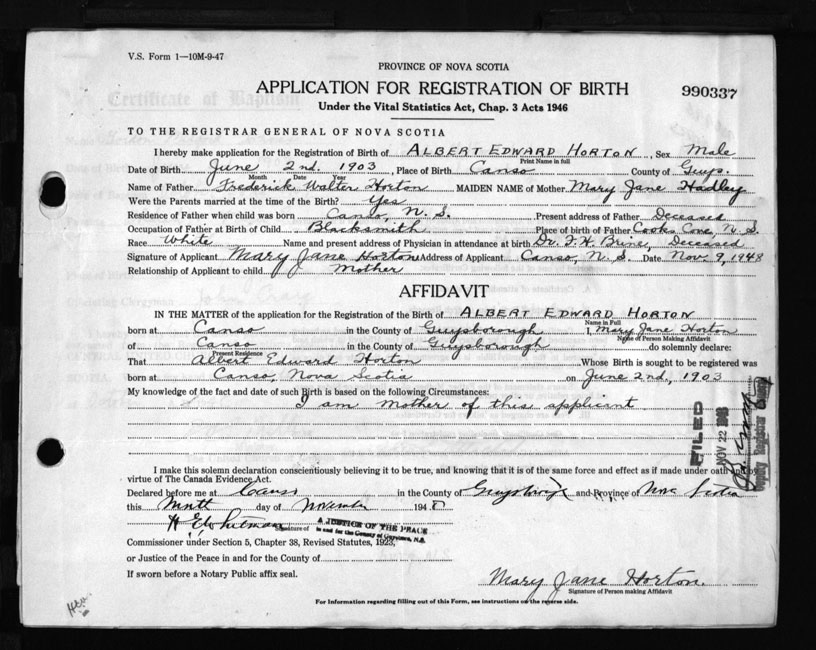 V.S. Form 1—10M-9-47
PROVINCE OF NOVA SCOTIA
APPLICATION FOR REGISTRATION OF BIRTH
990337
Under the Vital Statistics Act, Chap. 3 Acts 1946
TO THE REGISTRAR GENERAL OF NOVA SCOTIA
I hereby make application for the Registration of Birth of ALBERT EDWARD HORTON, Sex Male
Print Name in full
Date of Birth June 2nd. 1903, Place of Birth Canso County of Guys.
Month Date Year
Name of Father Frederick Walter Horton MAIDEN NAME of Mother Mary Jane Hadley
Were the Parents married at the time of the Birth? Yes
Residence of Father when child was born Canso, N. S. Present address of Father Deceased
Occupation of Father at Birth of Child Blacksmith Place of birth of Father Cooks Cove, N. S.
Race White Name and present address of Physician in attendance at birth Dr. F. H. Brine, Deceased
Signature of Applicant Mary Jane Horton Address of Applicant Canso, N. S. Date Nov. 9, 1948
Relationship of Applicant to child Mother
AFFIDAVIT
IN THE MATTER of the application for the Registration of the Birth of ALBERT EDWARD HORTON
Name in Full
born at Canso in the County of Guysborough I, Mary Jane Horton
Name of Person Making Affidavit
of Canso in the County of Guysborough do solemnly declare:
Present Residence
That Albert Edward Horton Whose Birth is sought to be registered was
born at Canso, Nova Scotia on June 2nd, 1903
My knowledge of the fact and date of such Birth is based on the following Circumstances:
I am mother of this applicant
FILED
NOV 22 1948
Deputy Registrar
I make this solemn declaration conscientiously believing it to be true, and knowing that it is of the same force and effect as if made under oath and by
virtue of The Canada Evidence Act.
Declared before me at Canso in the County of Guysboro and Province of Nova Scotia
this Ninth day of November 1948
H E Whitman
Signature of
A JUSTICE OF THE PEACE
in and for the County of Guysboro, N.S.
Commissioner under Section 5, Chapter 38, Revised Statutes, 1923,
or Justice of the Peace in and for the County of
If sworn before a Notary Public affix seal.
Mary Jane Horton.
Signature of Person making Affidavit
For Information regarding filling out of this Form, see instructions on the reverse side.